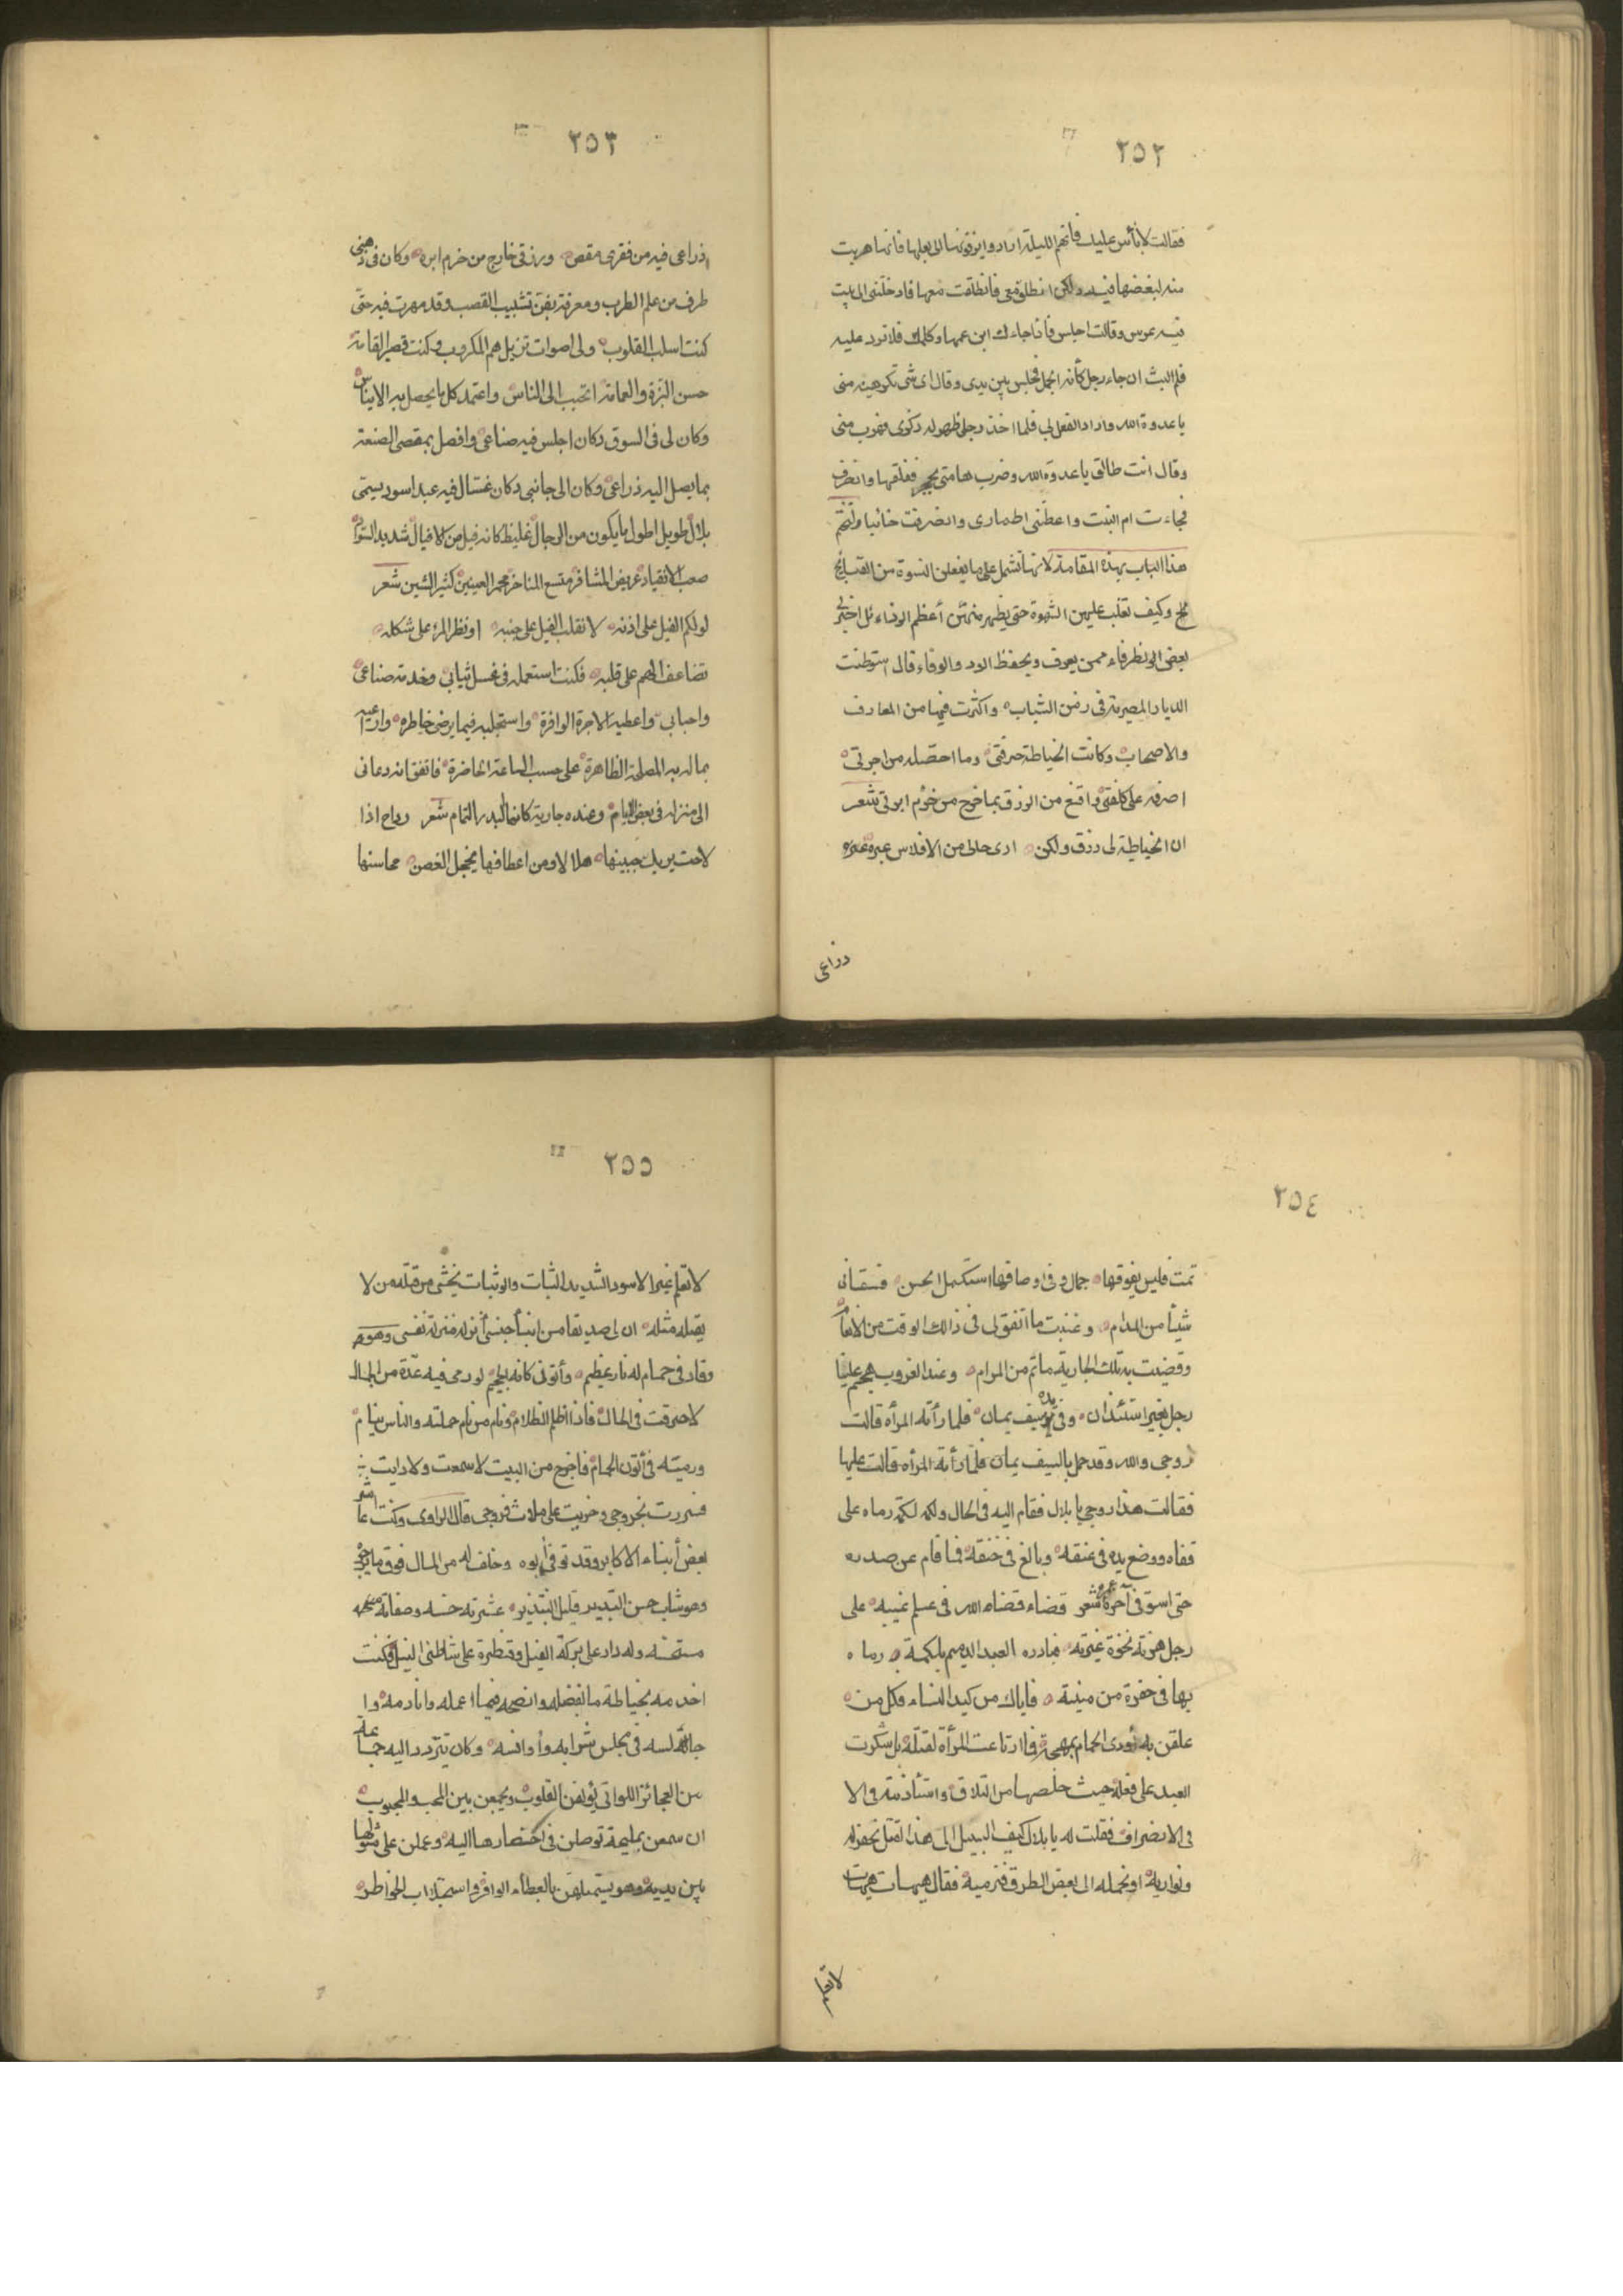 ٢٥٢
فقالت لا بأس عليك فانهم الليلة ارادوا يزفونها الى بعلها فانها هربت
منه لبغضها فيه ولكن انطلق معي فانطلقت معها فادخلتني الى بيت
فيه عروس وقالت اجلس فاذا جاءك ابن عمها وكلمك فلا ترد عليه
فلم البث ان جاء رجل كأنه الجمل فجلس بين يدي وقال اى شى تكرهينه منى
يا عدوة الله واراد الفعل بي فلما اخذ رجلي ظهر له ذكرى فهرب منى
وقال انت طالق يا عدوة الله وضرب هامتى بحجر ففلقها وانصرف
فجاءت ام البنت واعطتنى اطمارى وانصرفت خائبا
هذا الباب بهذه المقامة لانها تشمل على ما يفعلن النسوة من القبائح
وكيف تغلب عليهن الشهوة حتى يظهر منهن أعظم الوفاء
بعض الظرفاء ممن يعرف ويحفظ الود والوفاء قال استوطنت
الديار المصرية فى زمن الشباب واكثرت فيها من المعارف
والاصحاب وكانت الخياطة حرفتى وما احصله من اجرتى
اصرفه على كلفتى واقنع من الرزق بما خرج من خرم ابرتى شعر
ان الخياطة لى رزق ولكن ارى حالى من الافلاس عبره
ذراعى
٢٥٣
ذراعى فيه من فقرى مقص ورزقى خارج من خرم ابره وكان فى ذهنى
طرف من علم الطرب ومعرفة بفن تشبيب القصب وقد مهرت فيه حتى
كنت اسلب القلوب ولى اصوات تزيل هم المكروب وكنت قصير القامة
حسن البزة والعمامة اتحبب الى الناس واعتمد كل ما يحصل به الايناس
وكان لى فى السوق دكان اجلس فيه صناعى وافصل بمقصى الصنعة
بما يصل اليه ذراعى وكان الى جانبى دكان غسال فيه عبد اسود يسمى
بلال طويل اطول ما يكون من الرجال غليظ كانه فيل من الافيال شديد السواد
صعب الانقياد عريض المشافر متسع المناخر محمر العينين كثير الشين شعر
لو لكم الفيل على اذنه لانقلب الفيل على جنبه او نظر المرء على شكله
تضاعف الهم على قلبه فكنت استعمله فى غسل ثيابى وخدمة صناعى
واحبابى واعطيه الاجرة الوافرة واستجلبه فيما يرضى خاطره وارتعيه
بماله به المصلحة الظاهرة على حسب الساعة الحاضرة فاتفق انه دعانى
الى منزله فى بعض الايام وعنده جارية كانها البدر التمام شعر رداح اذا
لاحت يريك جبينها هلالا ومن اعطافها يخجل الغصن محاسنها
٢٥٤
تمت فليس يفوقها جمال وفى اوصافها استكمل الحسن فسقانى
شيأ من المدام وغنيت ما اتفق لى فى ذالك الوقت من الانغام
وقضيت بتلك الجارية ما تم من المرام وعند الغروب هجم علينا
رجل بغير استئذان وفى يده سيف يمان فلما رأته المرأة قالت
زوجى والله وقد حمل بالسيف يمان فلما رأته المرأه قالت عليها
فقالت هذا زوجى يا بلال فقام اليه فى الحال ولكمه لكمة رماه على
قفاه ووضع يده فى عنقه وبالغ فى خنقه فما قام عن صدره
حتى استوفى آخر عمره شعر قضاء قضاه الله فى علم غيبه على
رجل هزته نخوة غيرته فبادره العبد الدميم بلكمة رماه
بها فى حفرة من منيته فاياك من كيد النساء فكل من
علقن به أودى الحمام بمهجته فما ارتاعت المرأة لقتله بل شكرت
العبد على فعله حيث خلصها من التلاق واستأذنته فى الا
فى الانصراف فقلت له يا بلال كيف السبيل الى هذا القتيل نحفر له
ونواريه او نحمله الى بعض الطرق فنرميه فقال هيهات هيهات
لا تعلم
٢٥٥
لا تعلم غير الاسود الشديد الثبات والوثبات يخشى من قتله من لا
يقتله مثله ان لى صديقا من ابناء جنسى أنزله منزلة نفسى وهو
وقاد فى حمام له نار عظيم وأتونى كانه الجحيم لو رمى فيه عدة من الجمال
لاحترقت فى الحال فاذا اظلم الظلام ونام من نام حملته والناس نيام
ورميته فى أتون الحمام فاخرج من البيت لا سمعت ولا رايت
فسررت بخروجى وحزنت على قال الراوى وكنت
بعض أبناء الاكابر وقد توفى أبوه وخلف له من المال فوق ما يرجو
وهو شاب حسن التدبير قليل التبذير عشرته حسنه وصفاته
مستحسنه وله دار على بركة الفيل وقنطرة على شاطئ النيل فكنت
اخدمه بخياطة ما نفصله وانصحه فيما اعمله وانادمه وا
جالسه فى مجلس شرابه وأوانسه وكان يتردد اليه جماعة
من العجائز اللواتى يؤلفن القلوب ويجمعن بين المحب والمحبوب
ان سمعن بمليحة توصلن فى احضارها اليه وعملن على
بين يديه وهو يستميلهن بالعطاء الوافر واستجلاب الخواطر